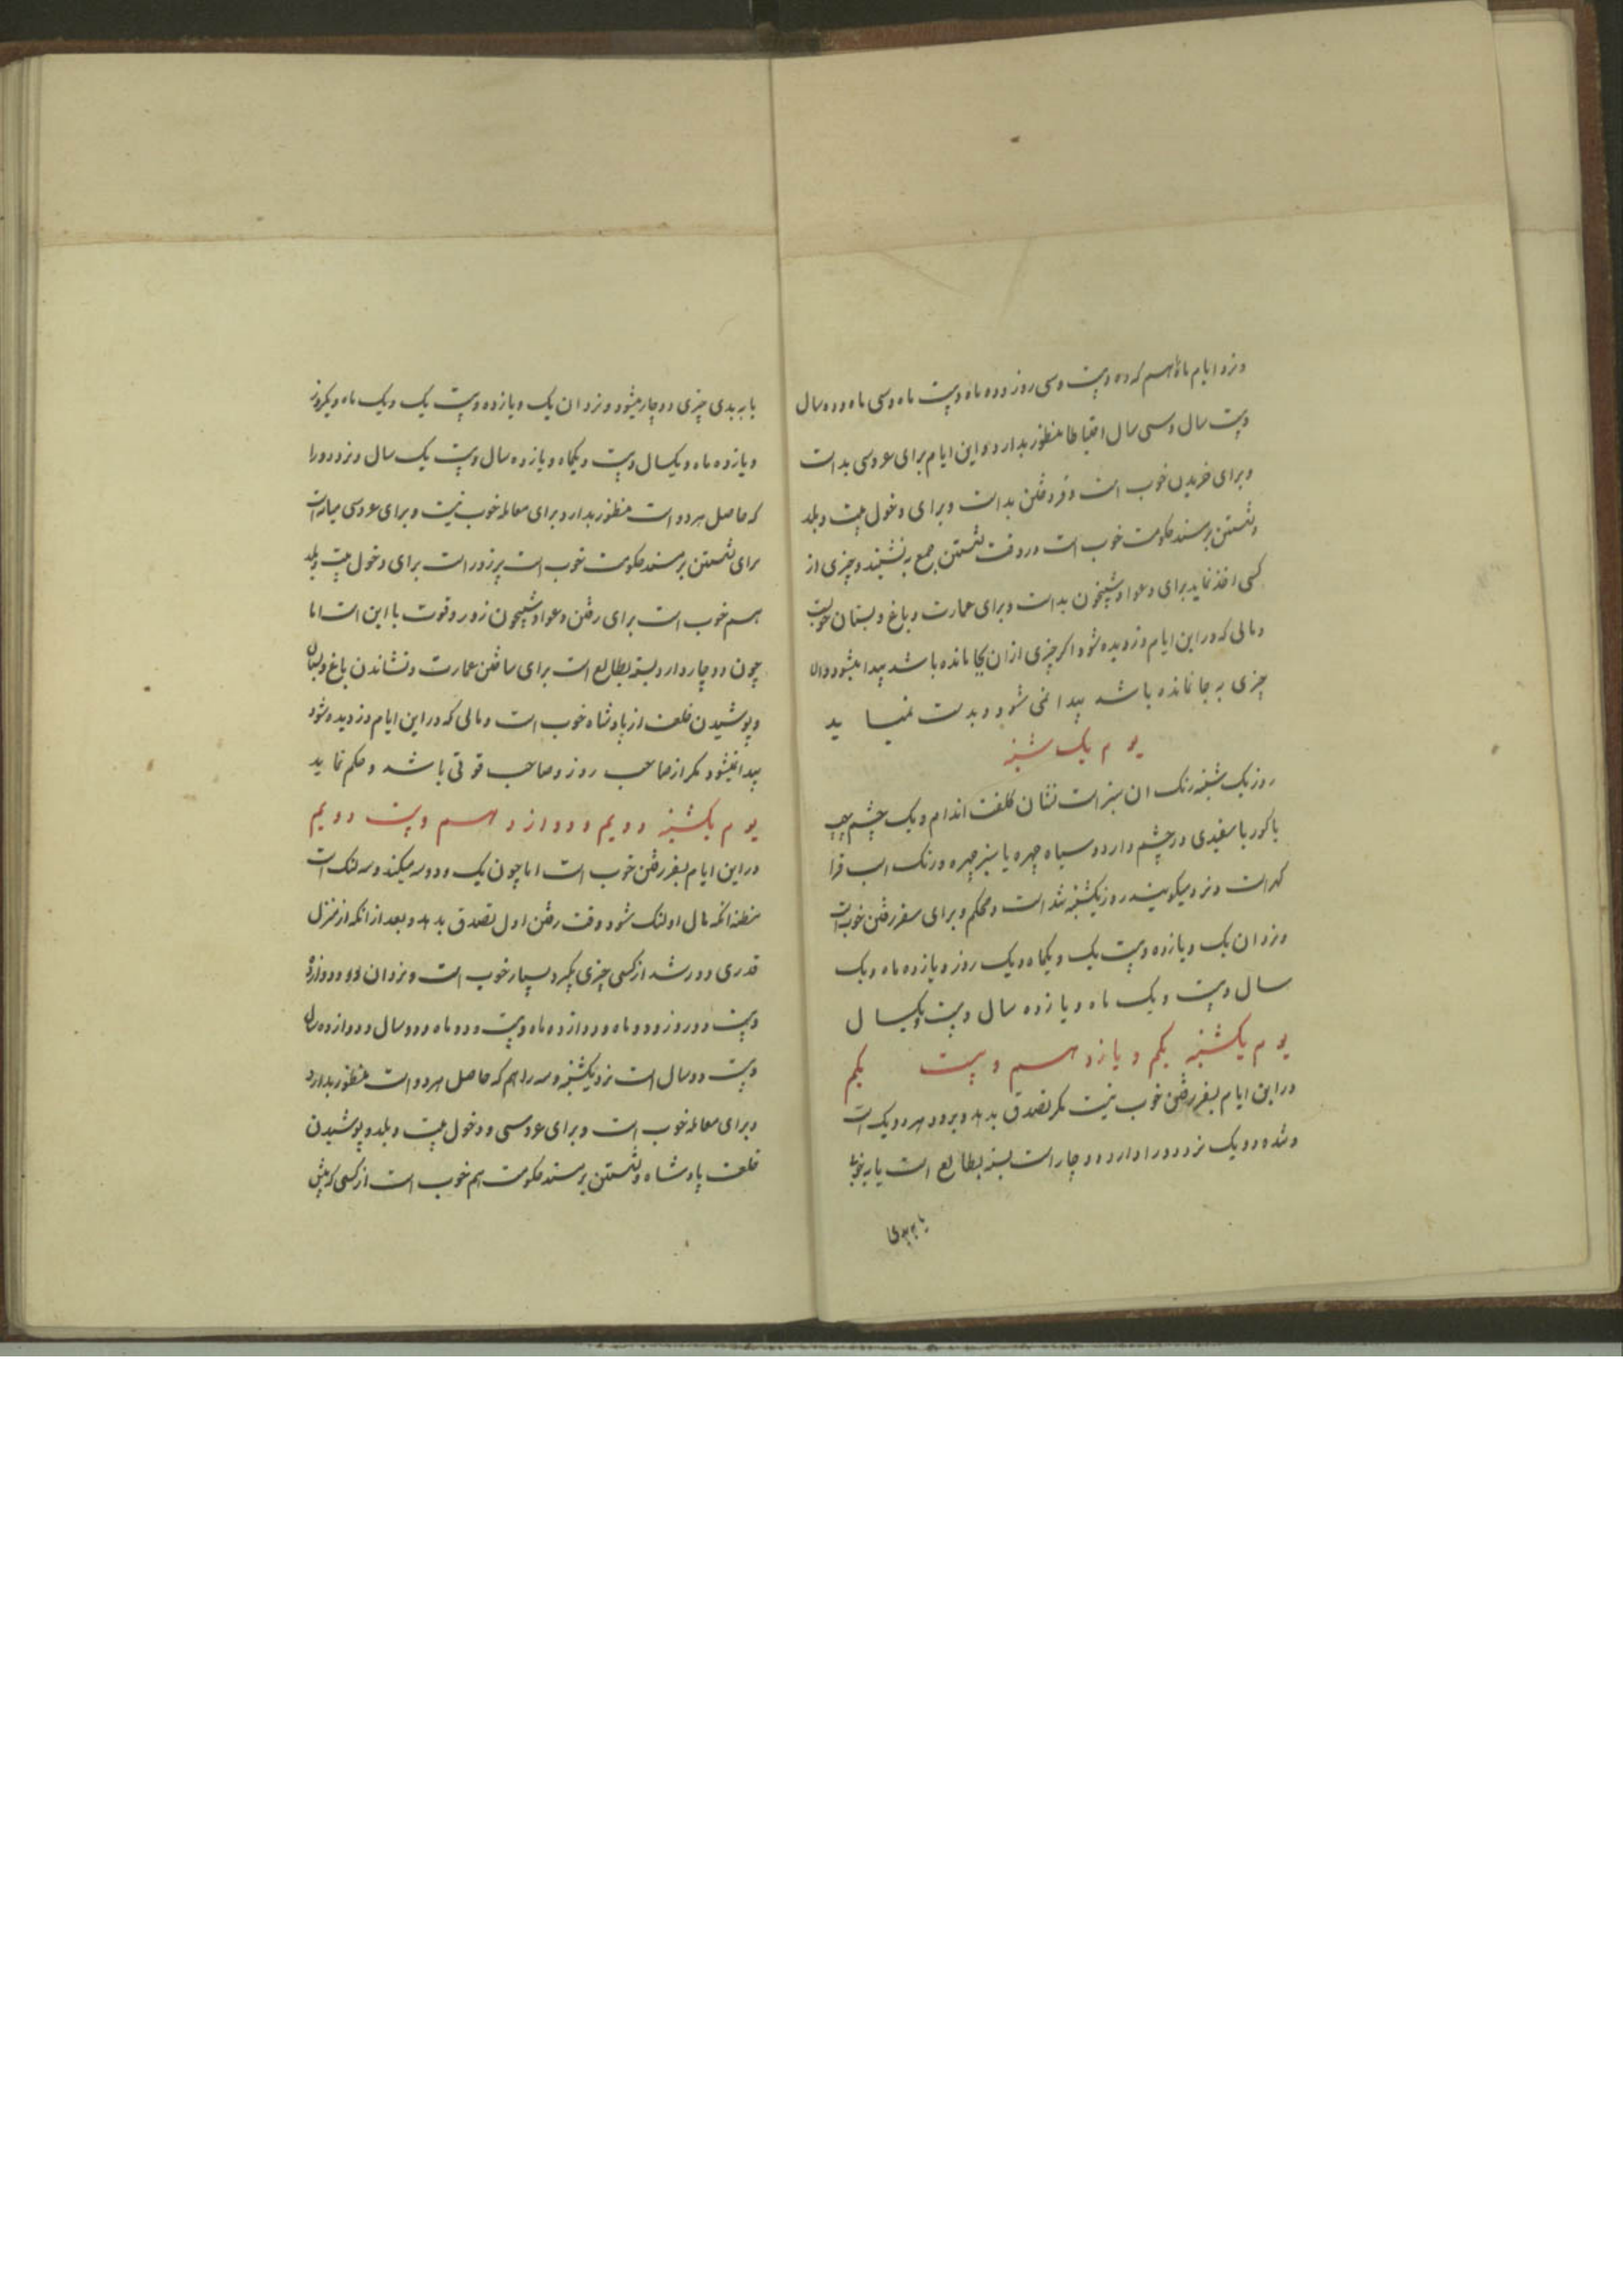 ونزد ایام ماه هم که ده وبیست وسی روز وده ماه وبیست ماه وسی ماه وده سال
وبیست سال وسی سال احتیاطا منظور بدارد واین ایام برای عروسی بد است
وبرای خریدن خوب است وفروختن بد است وبرای دخول بیت وبلد
ونشستن بر مسند حکومت خوب است در وقت نشستن جمع بنشینند وچیزی از
کسی اخذ نماید برای دعوا وشبیخون بد است وبرای عمارت وباغ وبستان خوبست
ومالی که در این ایام دزدیده شود اکر چیزی ازان بجا مانده باشد پیدا میشود والا
چیزی به جا نمانده باشد پیدا نمی شود وبدست نمیا ید
یوم یک شنبه
روز یک شنبه رنک ان سبز است نشان کلفت اندام ویک چشم چپ
یا کور یا سفیدی در چشم دارد وسیاه چهره یا سبز چهره ورنک اسب قرا
کهر است ونزد میکویند روز یکشنبه شد است ومحکم وبرای سفر رفتن خوب است
ونزد ان یک ویازده وبیست یک ویکماه ویک روز ویازده ماه ویک
سال وبیست ویک ماه ویازده سال وبیست ویکسال
یوم یکشنبه یکم ویازدهم وبیست یکم
در این ایام بسفر رفتن خوب نیست مکر تصدق بدهد وبرود هر دو یک است
وشده دو یک نزد دو را دارد دو چار است بسته بطالع است یا به خوبی
یا به بدی
یا به بدی چیزی دوچار میشود ونزد ان یک ویازده وبیست یک ویک ماه ویکروز
ویازده ماه ویکسال وبیست ویکماه ویازده سال وبیست یک سال ونزد دو را
که حاصل هر دو است منظور بدارد وبرای معامله خوب نیست وبرای عروسی میانه است
برای نشستن بر مسند حکومت خوب است پر زور است برای دخول بیت وبلد
هم خوب است برای رفتن دعوا وشبیخون زور وقوت با این است اما
چون دوچار دارد بسته بطالع است برای ساختن عمارت ونشاندن باغ وبستان
وپوشیدن خلعت از پادشاه خوب است ومالی که در این ایام دزدیده شود
پیدا نمیشود مکر از صاحب روز وصاحب قوتی باشد وحکم نماید
یوم یکشنبه دویم ودوازدهم وبیست دویم
در این ایام بسفر رفتن خوب است اما چون یک ودو سه میکند وسه لنک است
مظنه انکه مال او لنک شود وقت رفتن اول تصدق بدهد وبعد از انکه از منزل
قدری دور شد از کسی چیزی بکیرد بسیار خوب است ونزد ان دو ودوازده
وبیست دو روز ودو ماه ودوازده ماه وبیست ودو ماه ودو سال ودوازده سال
وبیست دو سال است نزد یکشنبه وسه را هم که حاصل هر دو است منظور بدارد
وبرای معامله خوب است وبرای عروسی ودخول بیت وبلد وپوشیدن
خلعت پادشاه ونشستن بر مسند حکومت هم خوب است از کسی که پیش